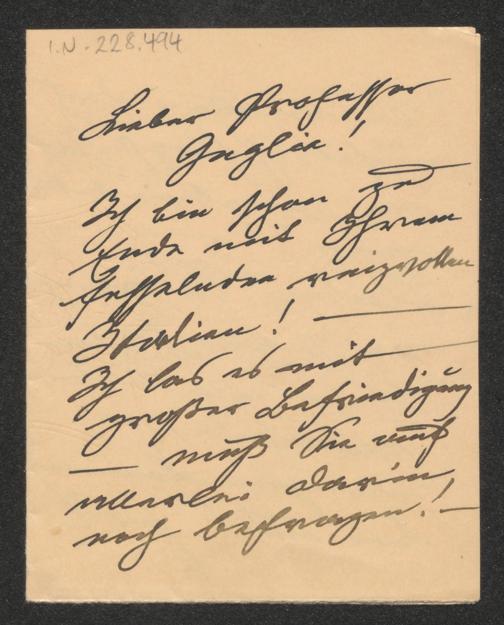 I.N. 228.494
Lieber Professor
Guglia!
Ich bin schon zu
Ende mit Ihrem
fesselnden reizvollen
Italien! —
Ich las es mit
großer Befriedigung
— muß Sie auf
allerlei darin,
noch befragen! —